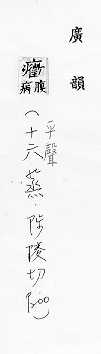 廣韻
癥腹病
平聲
(十六蒸·陟陵切 P200)